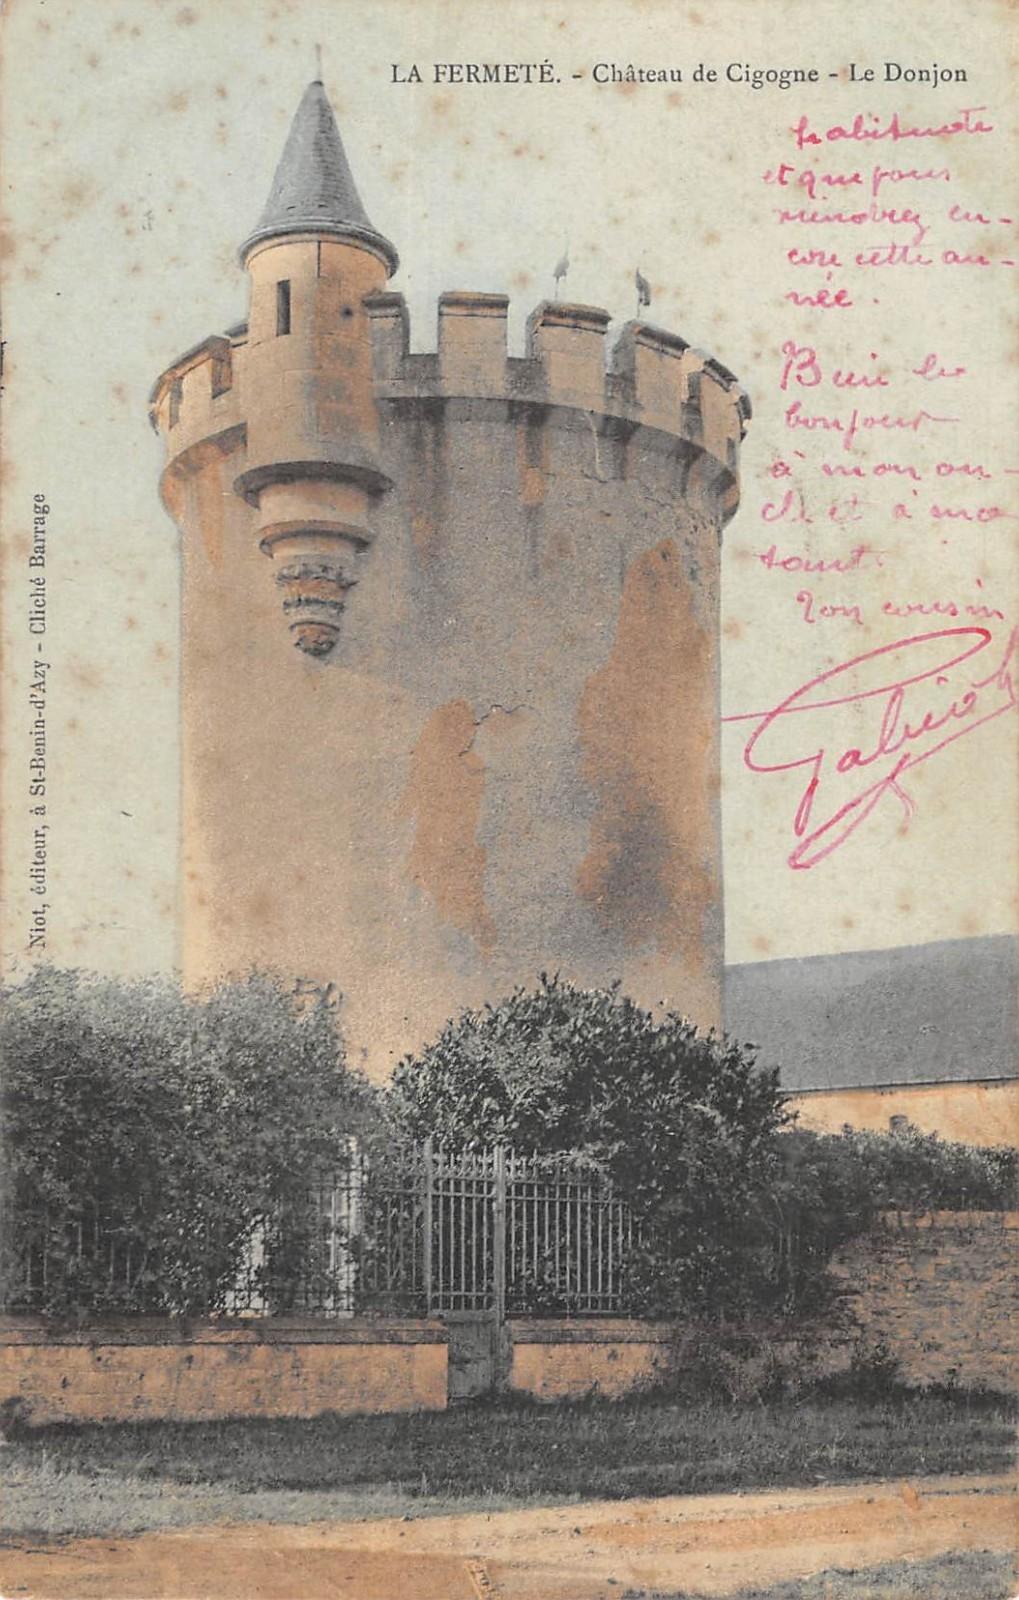 LA FERMETÉ. - Château de Cigogne - Le Donjon
et que
en-
core cette an-
née.
Bien le
bonjour
à mon on-
cle et à ma
tante.
Ton cousin
Gabriel
Niot, éditeur, à St-Benin-d'Azy - Cliché Barrage